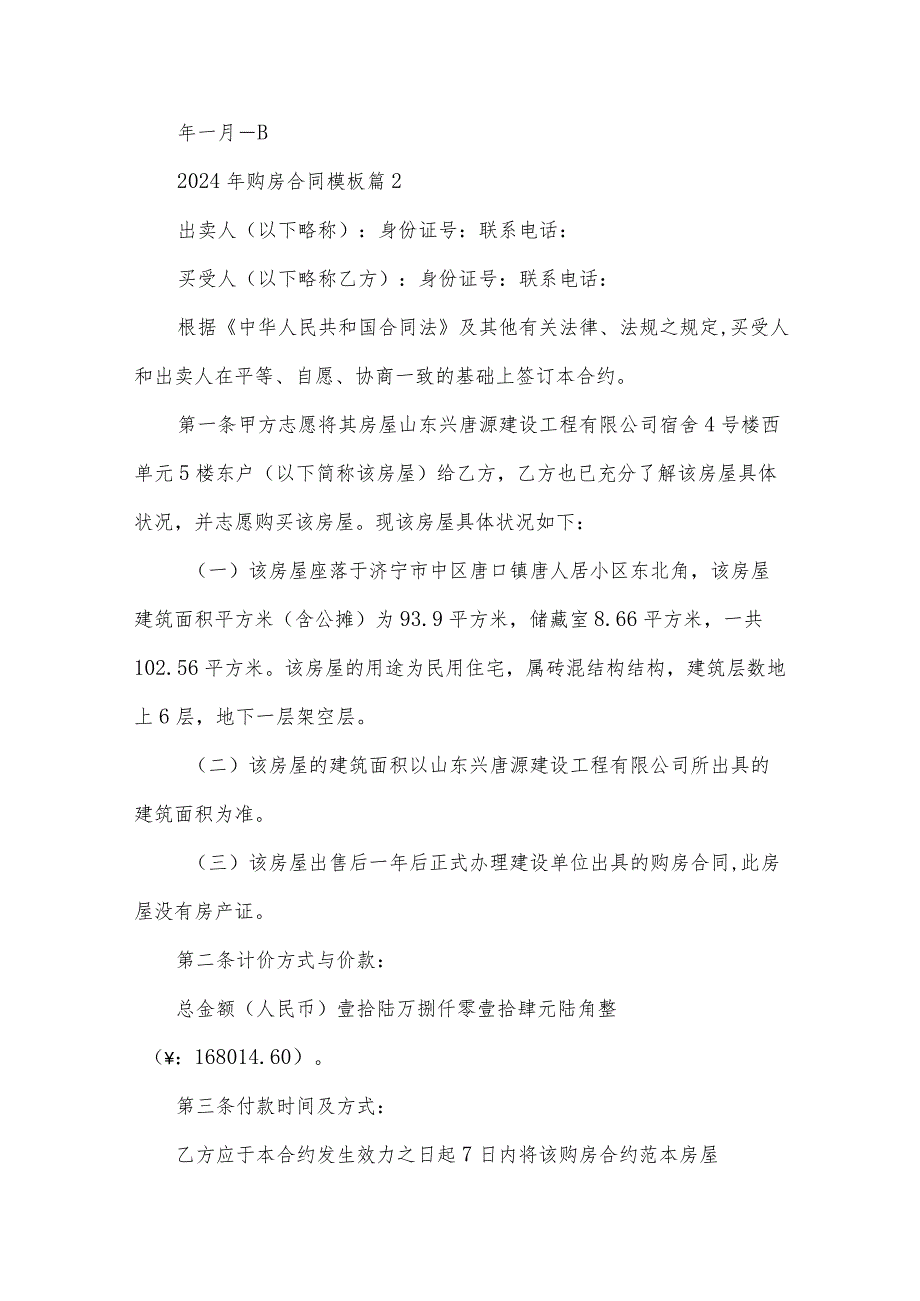 年一月－B
2024年购房合同模板篇2
出卖人（以下略称）：身份证号：联系电话：
买受人（以下略称乙方）：身份证号：联系电话：
根据《中华人民共和国合同法》及其他有关法律、法规之规定,买受人
和出卖人在平等、自愿、协商一致的基础上签订本合约。
第一条甲方志愿将其房屋山东兴唐源建设工程有限公司宿舍4号楼西
单元5楼东户（以下简称该房屋）给乙方，乙方也已充分了解该房屋具体
状况，并志愿购买该房屋。现该房屋具体状况如下：
（一）该房屋座落于济宁市中区唐口镇唐人居小区东北角，该房屋
建筑面积平方米（含公摊）为93.9平方米，储藏室8.66平方米，一共
102.56平方米。该房屋的用途为民用住宅，属砖混结构结构，建筑层数地
上6层，地下一层架空层。
（二）该房屋的建筑面积以山东兴唐源建设工程有限公司所出具的
建筑面积为准。
（三）该房屋出售后一年后正式办理建设单位出具的购房合同,此房
屋没有房产证。
第二条计价方式与价款：
总金额（人民币）壹拾陆万捌仟零壹拾肆元陆角整
（¥：168014.60）。
第三条付款时间及方式：
乙方应于本合约发生效力之日起7日内将该购房合约范本房屋